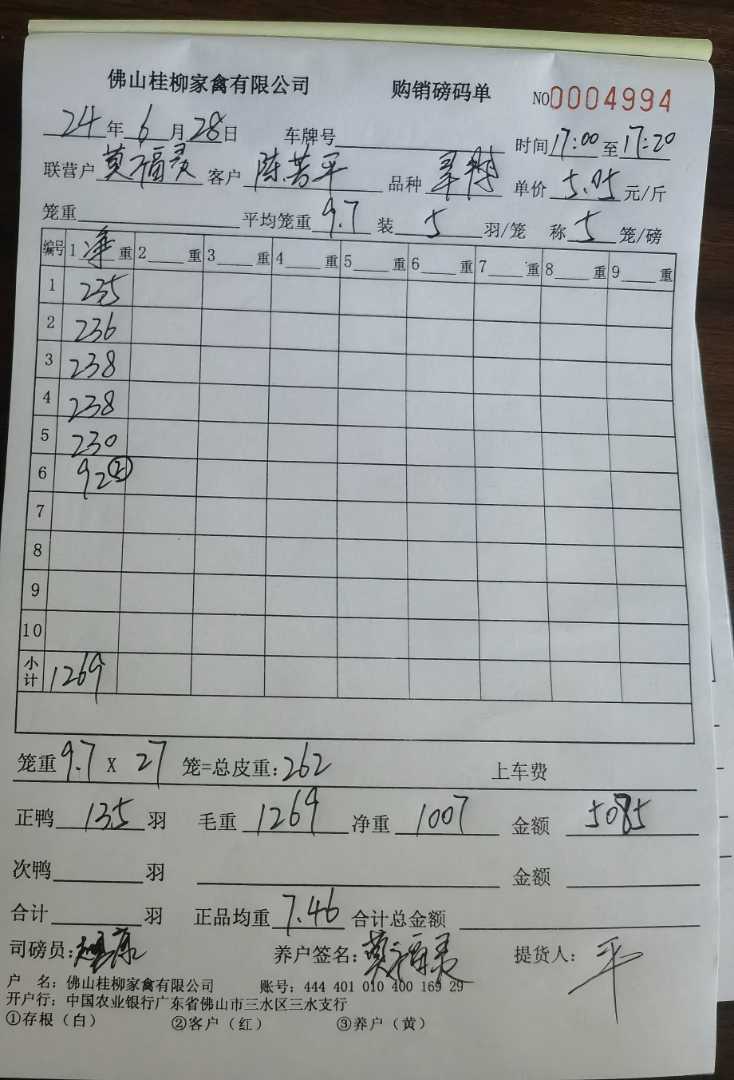 佛山桂柳家禽有限公司 购销磅码单 NO0004994
24年6月28日 车牌号 时间17:00至17:20
联营户莫福灵 客户陈芳平 品种 单价5.05元/斤
笼重 平均笼重9.7 装5羽/笼 称5笼/磅
编号 1 净重 2 重 3 重 4 重 5 重 6 重 7 重 8 重 9 重
1 235
2 236
3 238
4 238
5 230
6 92②
7
8
9
10
小计 1269
笼重9.7 X 27 笼=总皮重:262 上车费
正鸭135羽 毛重1269 净重1007 金额5085
次鸭 羽 金额
合计 羽 正品均重7.46 合计总金额
司磅员: 养户签名:莫福灵 提货人:平
户 名:佛山桂柳家禽有限公司 账号:444 401 010 400 169 29
开户行:中国农业银行广东省佛山市三水区三水支行
①存根(白) ②客户(红) ③养户(黄)